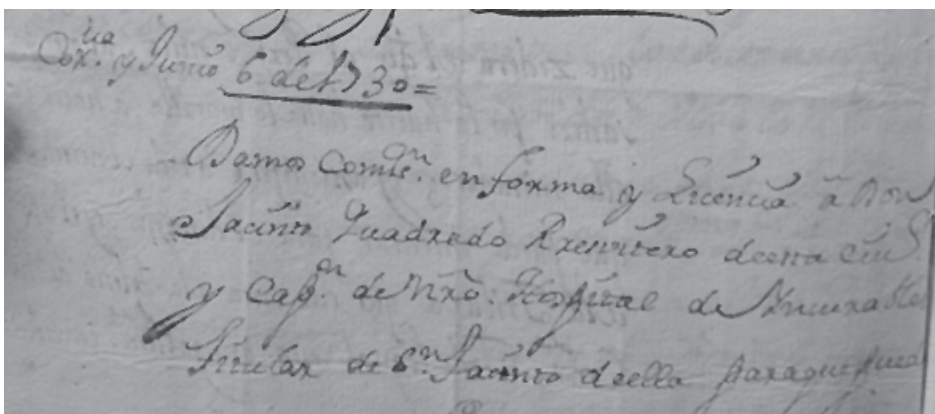 Cor.ua y Junio 6 de 1730=
Damos Comis.n en forma y Licencia â Don
Jacinto Quadrado Presvitero de esta Ciu.d
y Cap.n de Nro. Hospital de
Titular de S.n Jacinto de ella para que